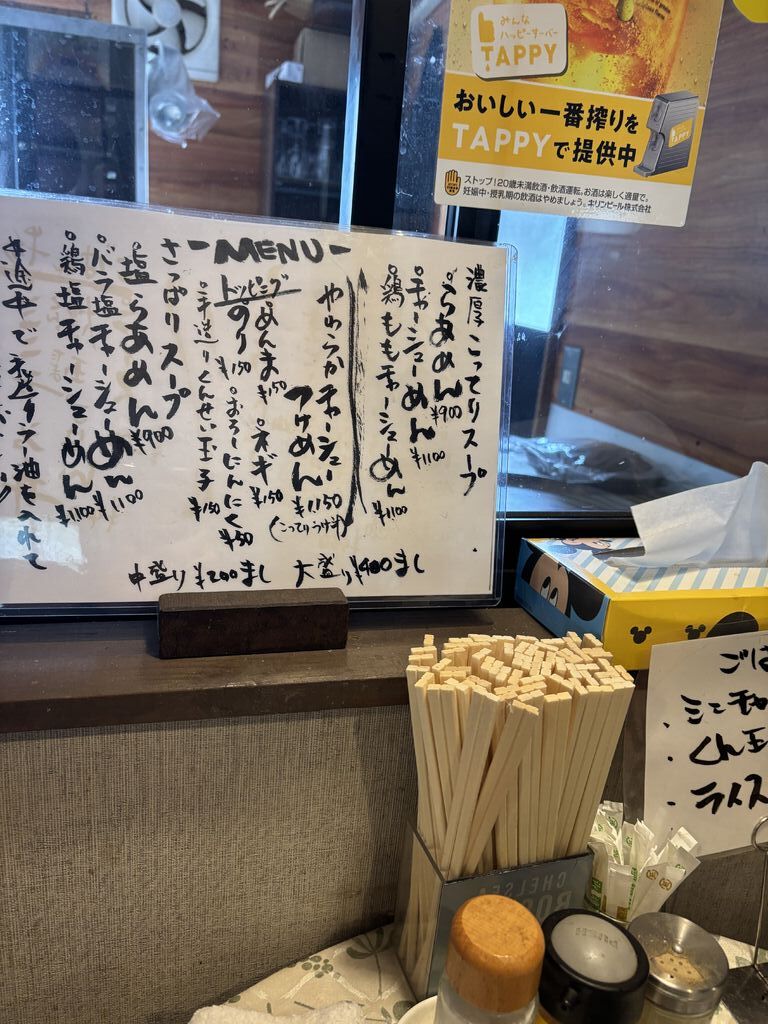 みんな
ハッピーサーバー
TAPPY
おいしい一番搾りを
TAPPYで提供中
ストップ!20歳未満飲酒・飲酒運転。お酒は楽しく適量で。
妊娠中・授乳期の飲酒はやめましょう。キリンビール株式会社
-MENU-
濃厚こってりスープ
らあめん ¥900
チャーシューめん ¥1100
鶏ももチャーシューめん ¥1100
やわらかチャーシュー
つけめん ¥1,150
(こってりつけ汁)
トッピング
めんま ¥150 ネギ ¥150
のり ¥150 おろしにんにく ¥50
手造りくんせい玉子 ¥150
さっぱりスープ
塩らあめん ¥900
バラ塩チャーシューめん ¥1100
鶏塩チャーシューめん ¥1100
途中で
ラー油を入れて
中盛り ¥200まし 大盛り ¥400まし
ごは
・ミニチャ
・くん玉
・ライス
CHELSEA